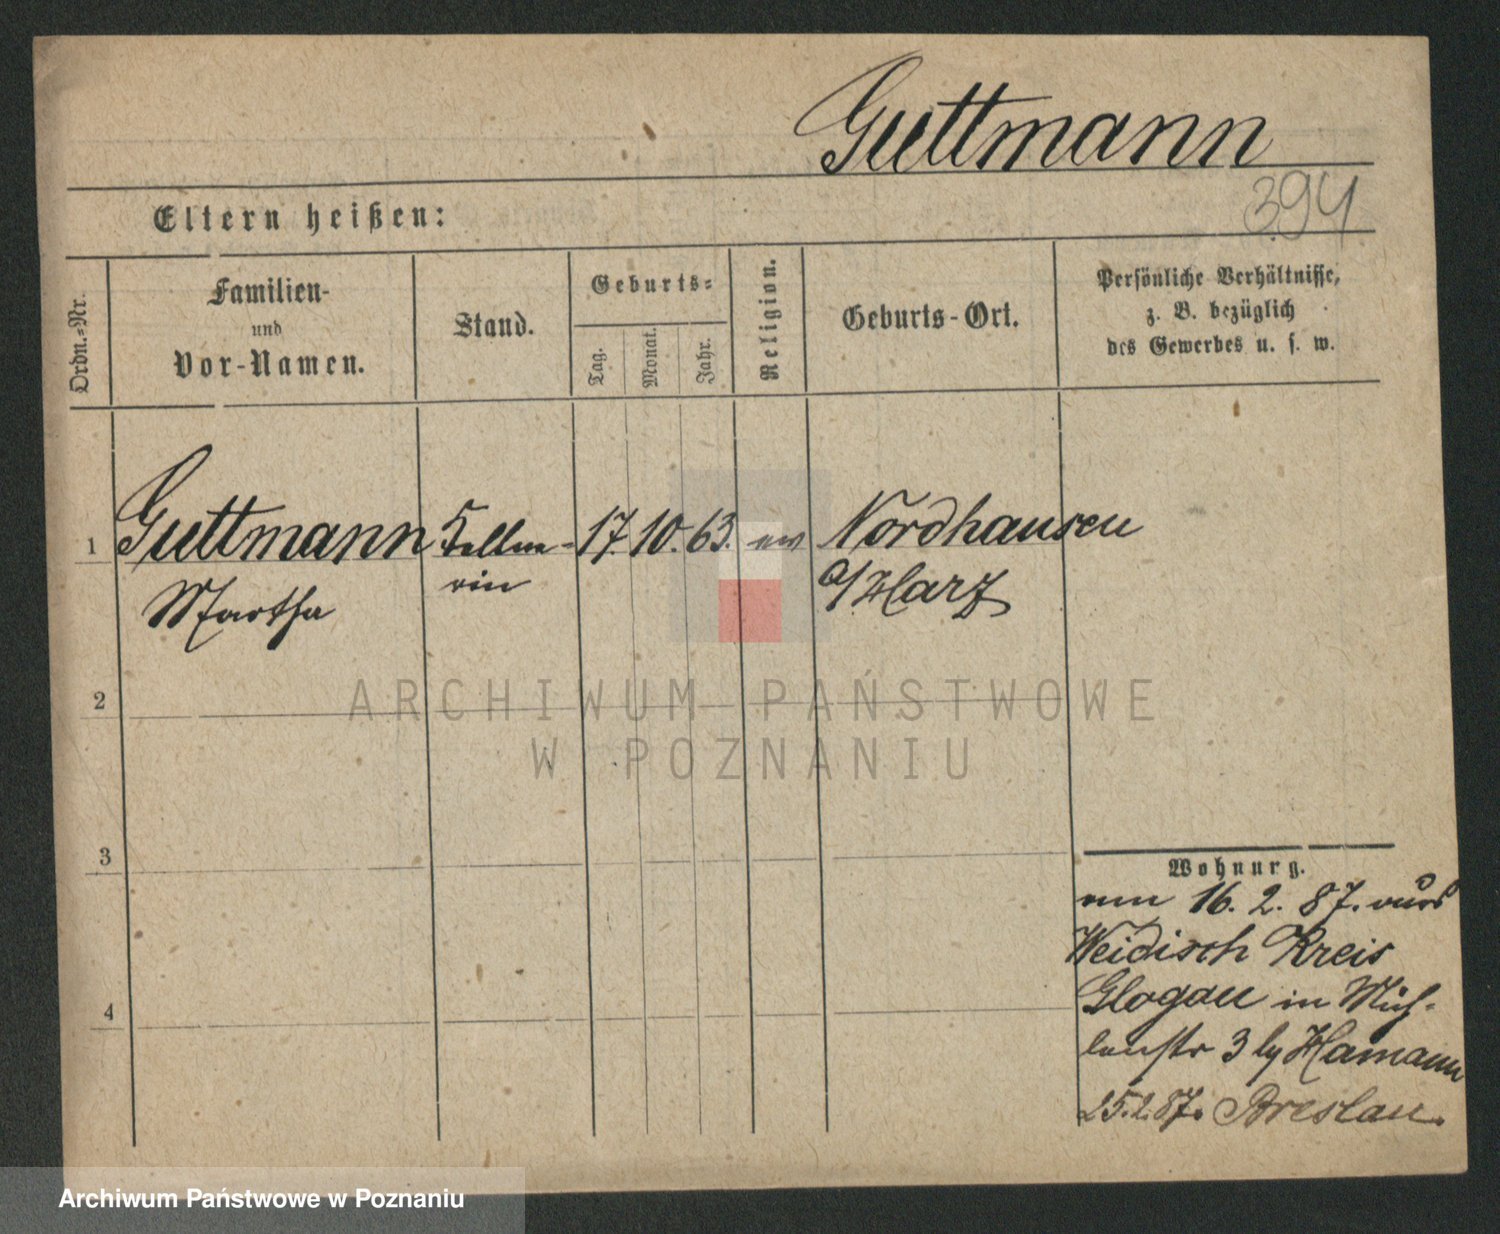 Guttmann
394
Eltern heißen:
Ordn.-Nr.
Familien-
und
Vor-Namen.
Stand.
Geburts-
Tag.
Monat.
Jahr.
Religion.
Geburts-Ort.
Persönliche Verhältnisse,
z. B. bezüglich
des Gewerbes u. s. w.
1 Guttmann Kellne- 17. 10. 63. ev Nordhausen
Martha rin a/Harz
2
3
4
Wohnung.
am 16. 2. 87. aus
Weidisch Kreis
Glogau in Müh-
lenstr 3 by Hamann
25.2.87. Breslau.
ARCHIWUM PAŃSTWOWE
W POZNANIU
Archiwum Państwowe w Poznaniu